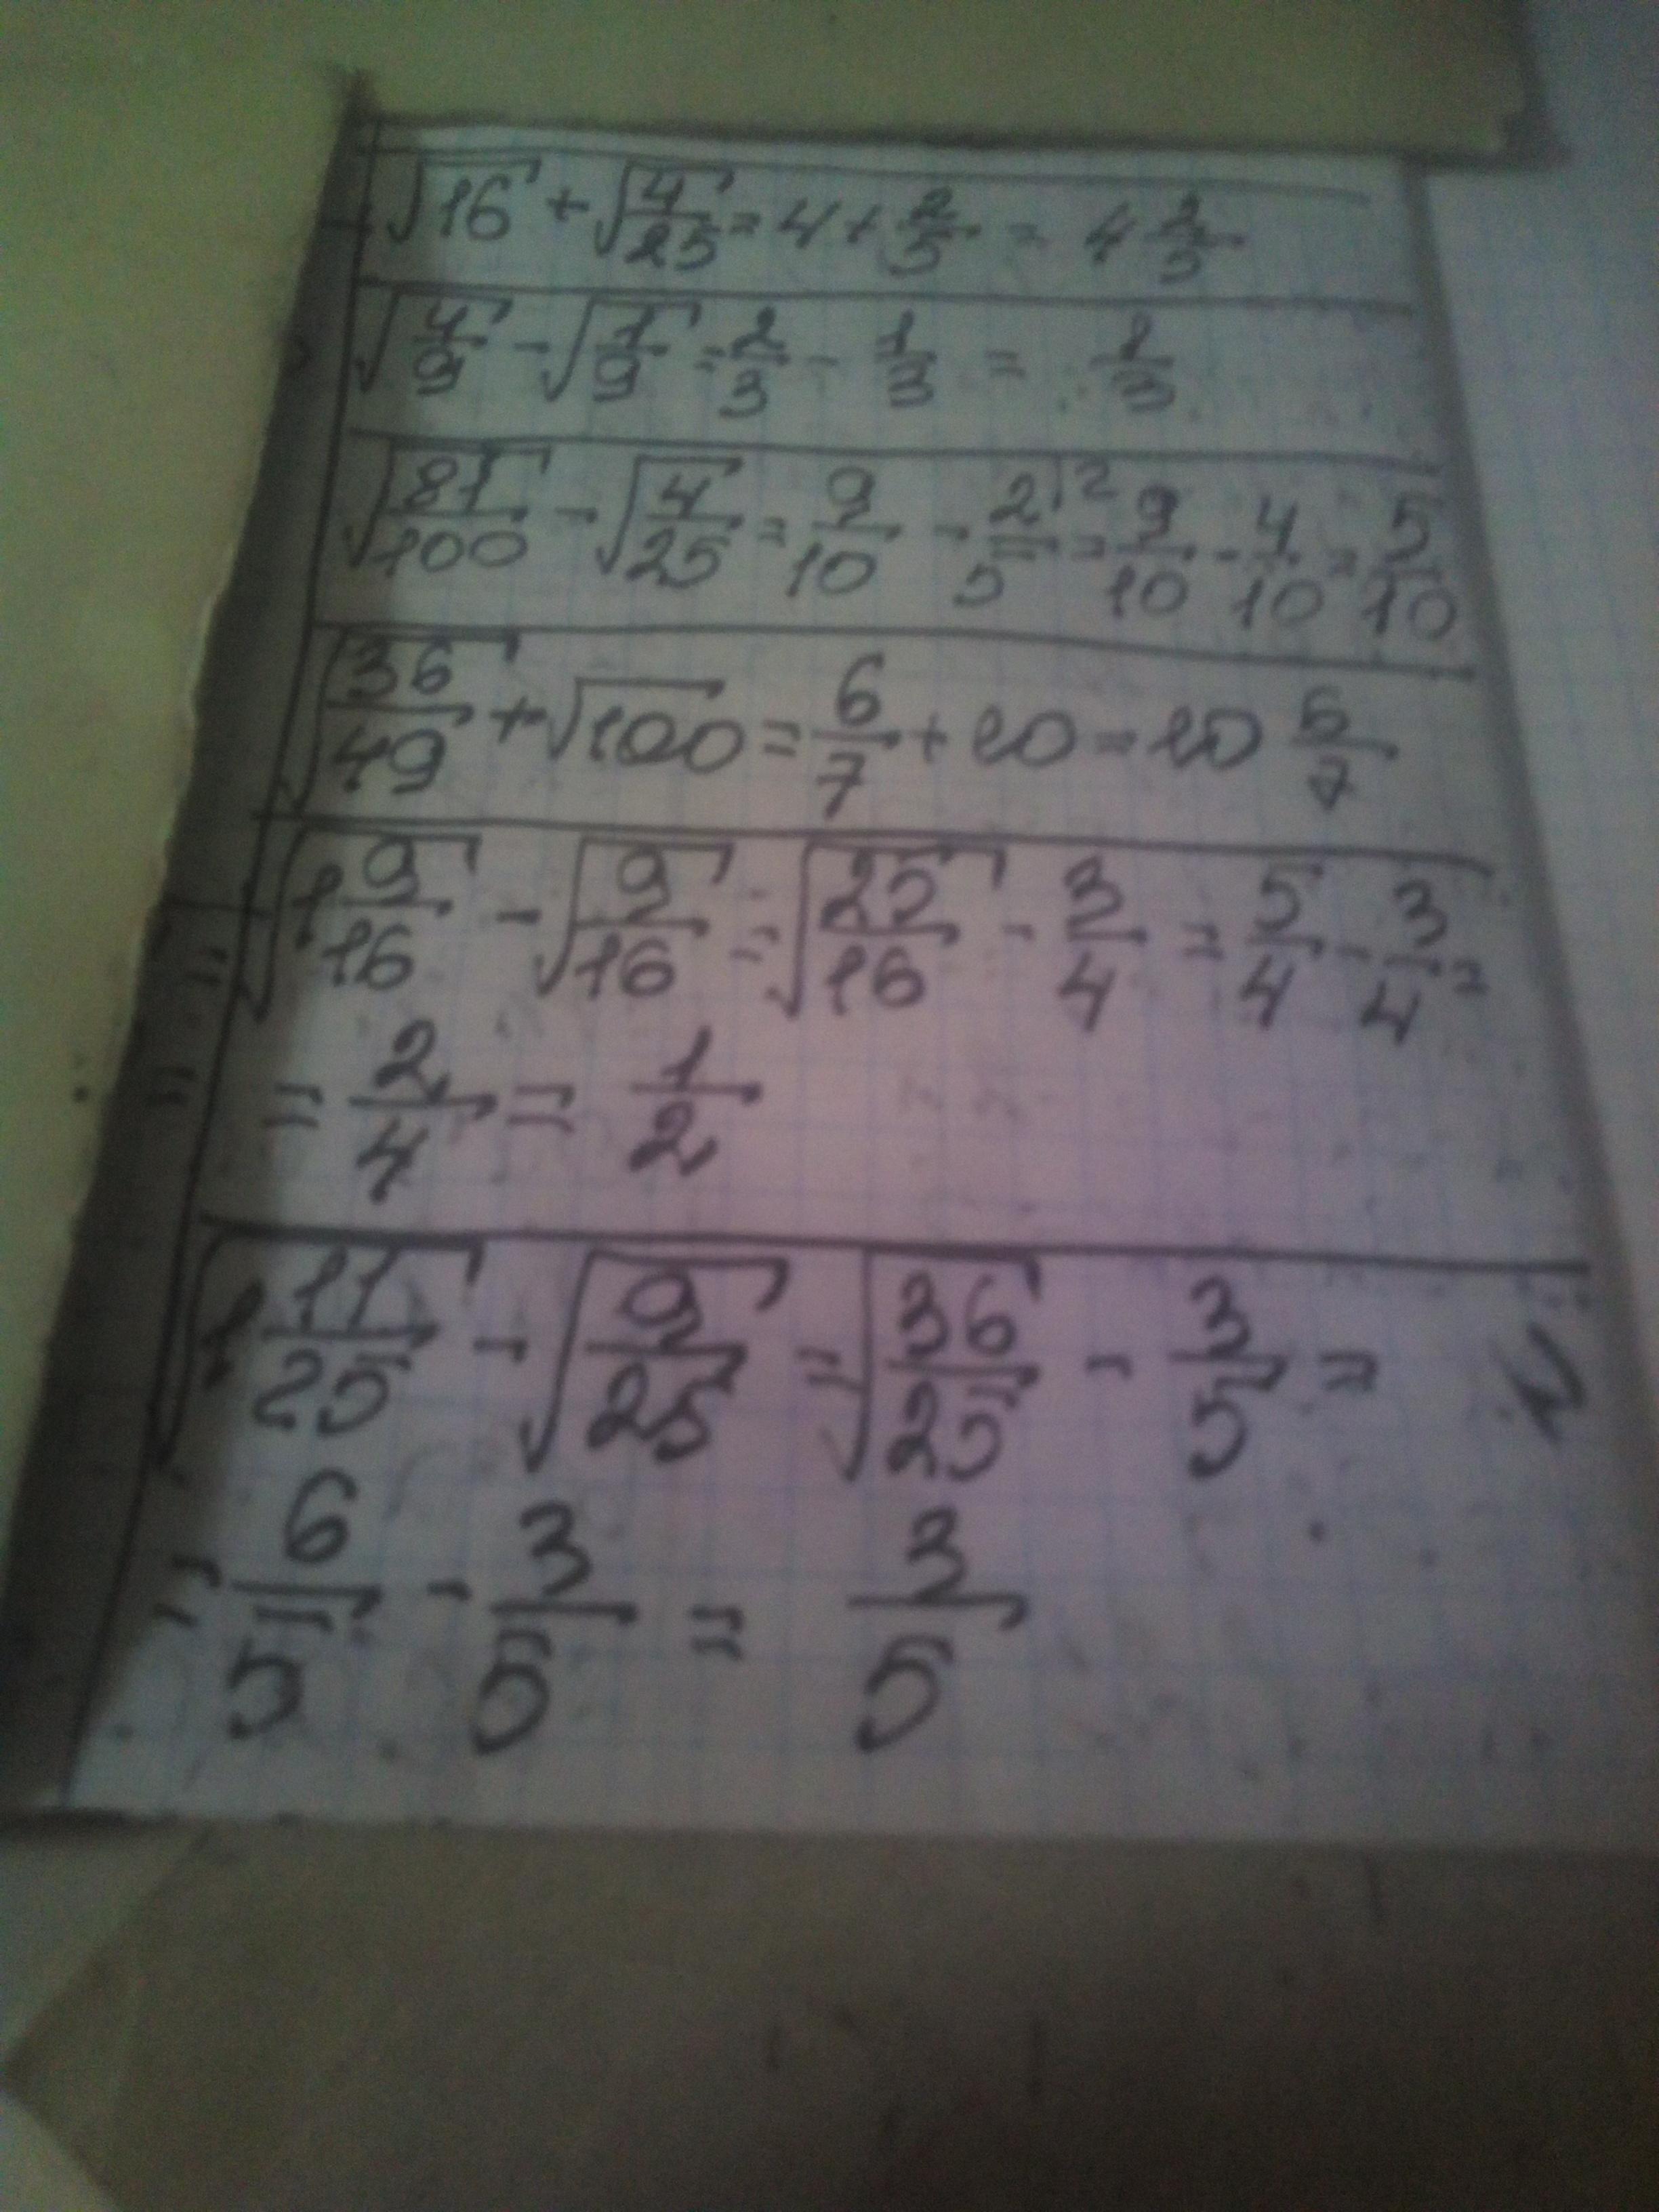 √16 + √(4/25) = 4 + 2/5 = 4 2/5
√(4/9) - √(1/9) = 2/3 - 1/3 = 1/3
√(81/100) - √(4/25) = 9/10 - 2/5 |2 = 9/10 - 4/10 = 5/10
√(36/49) + √100 = 6/7 + 10 = 10 6/7
√(1 9/16) - √(9/16) = √(25/16) - 3/4 = 5/4 - 3/4 =
= 2/4 = 1/2
√(1 11/25) - √(9/25) = √(36/25) - 3/5 =
= 6/5 - 3/5 = 3/5